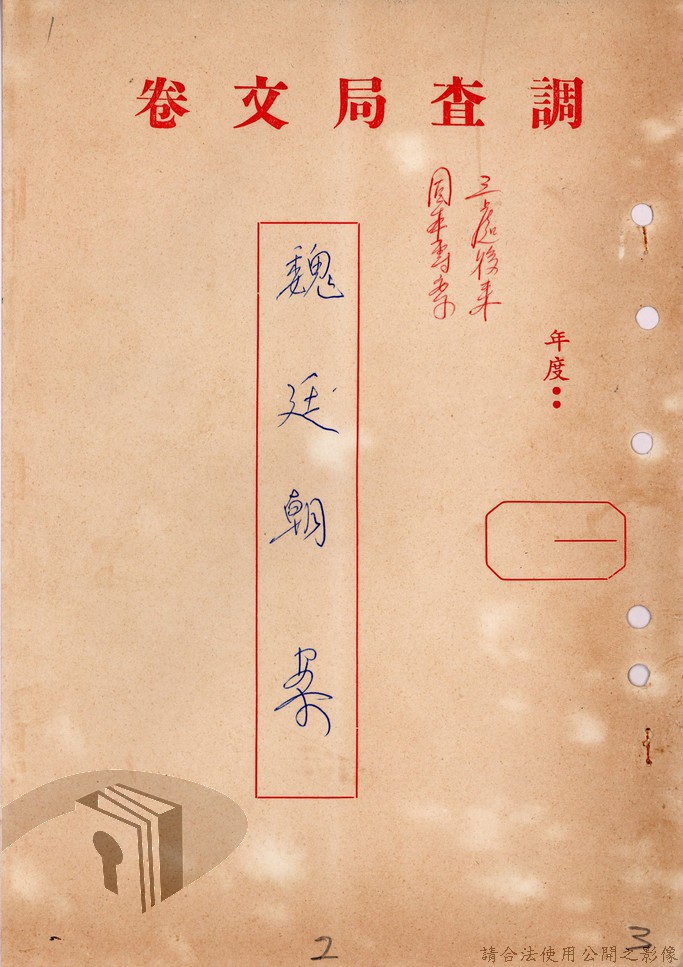 1
調查局文卷
三處後來
年度：
魏廷朝案
2
3
請合法使用公開之影像